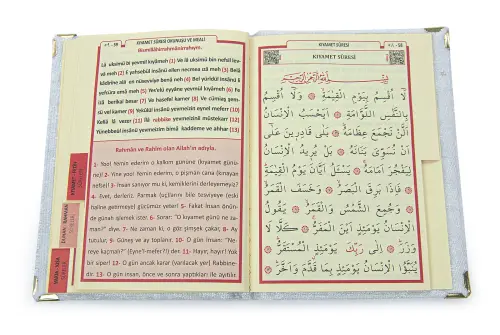 KIYAMET SÛRESİ OKUNUŞU VE MEALİ
Bismillâhirrahmânirrahîm.
Lâ uksimü bi yevmil kıyameh (1) Ve lâ uksimü bin nefsil lev-
vâ meh (2) E yahsebül insânü ellen necmea ızâ meh (3) Belâ
kâdirîne alâ en nüsevviye benâ neh (4) Bel yürîdül insânü li
yefcüra emâ meh (5) Yes'elü eyyâne yevmül kıyameh (6) Fe
izâ berikal besar (7) Ve hasefel kamer (8) Ve cümiaş şem-
sü vel kamer (9) Yekûlül insânü yevmeizin eynel mefer (10)
Kellâ lâ vezer (11) İlâ rabbike yevmeizinil müstekarr (12)
Yünebbeül insânü yevmeizim bimâ kaddeme ve ahhar (13)
Rahmân ve Rahîm olan Allah'ın adıyla.
1- Yoo! Yemin ederim o kalkım gününe (kıyamet günü-
ne)! 2- Yine yoo! Yemin ederim, o pişman cana (kınayan
nefse)! 3- İnsan sanıyor mu ki, kemiklerini derleyemeyiz?
4- Evet, derleriz. Parmak (uç)larını bile tesviyeye (eski
haline getirmeye) gücümüz yeter. 5- Fakat insan önün-
de günah işlemek ister. 6- Sorar: "O kıyamet günü ne za-
man?" diye. 7- Ne zaman ki, o göz şimşek çakar, 8- Ay
tutulur; 9- Güneş ve ay toplanır, 10- O gün insan: "Ne-
reye kaçmalı?" (Eyne'l-mefer?!) der. 11- Hayır, hayır! Yok
bir siper! 12- O gün ancak karar (varılacak yer) Rabbine-
dir. 13- O gün insan, önce ve sonra yaptıkları ile ayıtılır.
KIYAMET SÛRESİ
KIYAMET SÛRESİ
بِسْمِ اللَّهِ الرَّحْمَنِ الرَّحِيمِ
لَا أُقْسِمُ بِيَوْمِ الْقِيٰمَةِ ۞ وَلَا أُقْسِمُ
بِالنَّفْسِ اللَّوَّامَةِ ۞ اَيَحْسَبُ الْاِنْسَانُ
اَلَّنْ نَجْمَعَ عِظَامَهُ ۞ بَلٰى قَادِرِينَ عَلٰى
اَنْ نُسَوِّىَ بَنَانَهُ ۞ بَلْ يُرِيدُ الْاِنْسَانُ
لِيَفْجُرَ اَمَامَهُ ۞ يَسْئَلُ اَيَّانَ يَوْمُ الْقِيٰمَةِ
۞ فَاِذَا بَرِقَ الْبَصَرُ ۞ وَخَسَفَ الْقَمَرُ
۞ وَجُمِعَ الشَّمْسُ وَالْقَمَرُ ۞ يَقُولُ
الْاِنْسَانُ يَوْمَئِذٍ اَيْنَ الْمَفَرُّ ۞ كَلَّا لَا
وَزَرَ ۞ اِلٰى رَبِّكَ يَوْمَئِذٍ الْمُسْتَقَرُّ ۞
يُنَبَّؤُا الْاِنْسَانُ يَوْمَئِذٍ بِمَا قَدَّمَ وَاَخَّرَ ۞